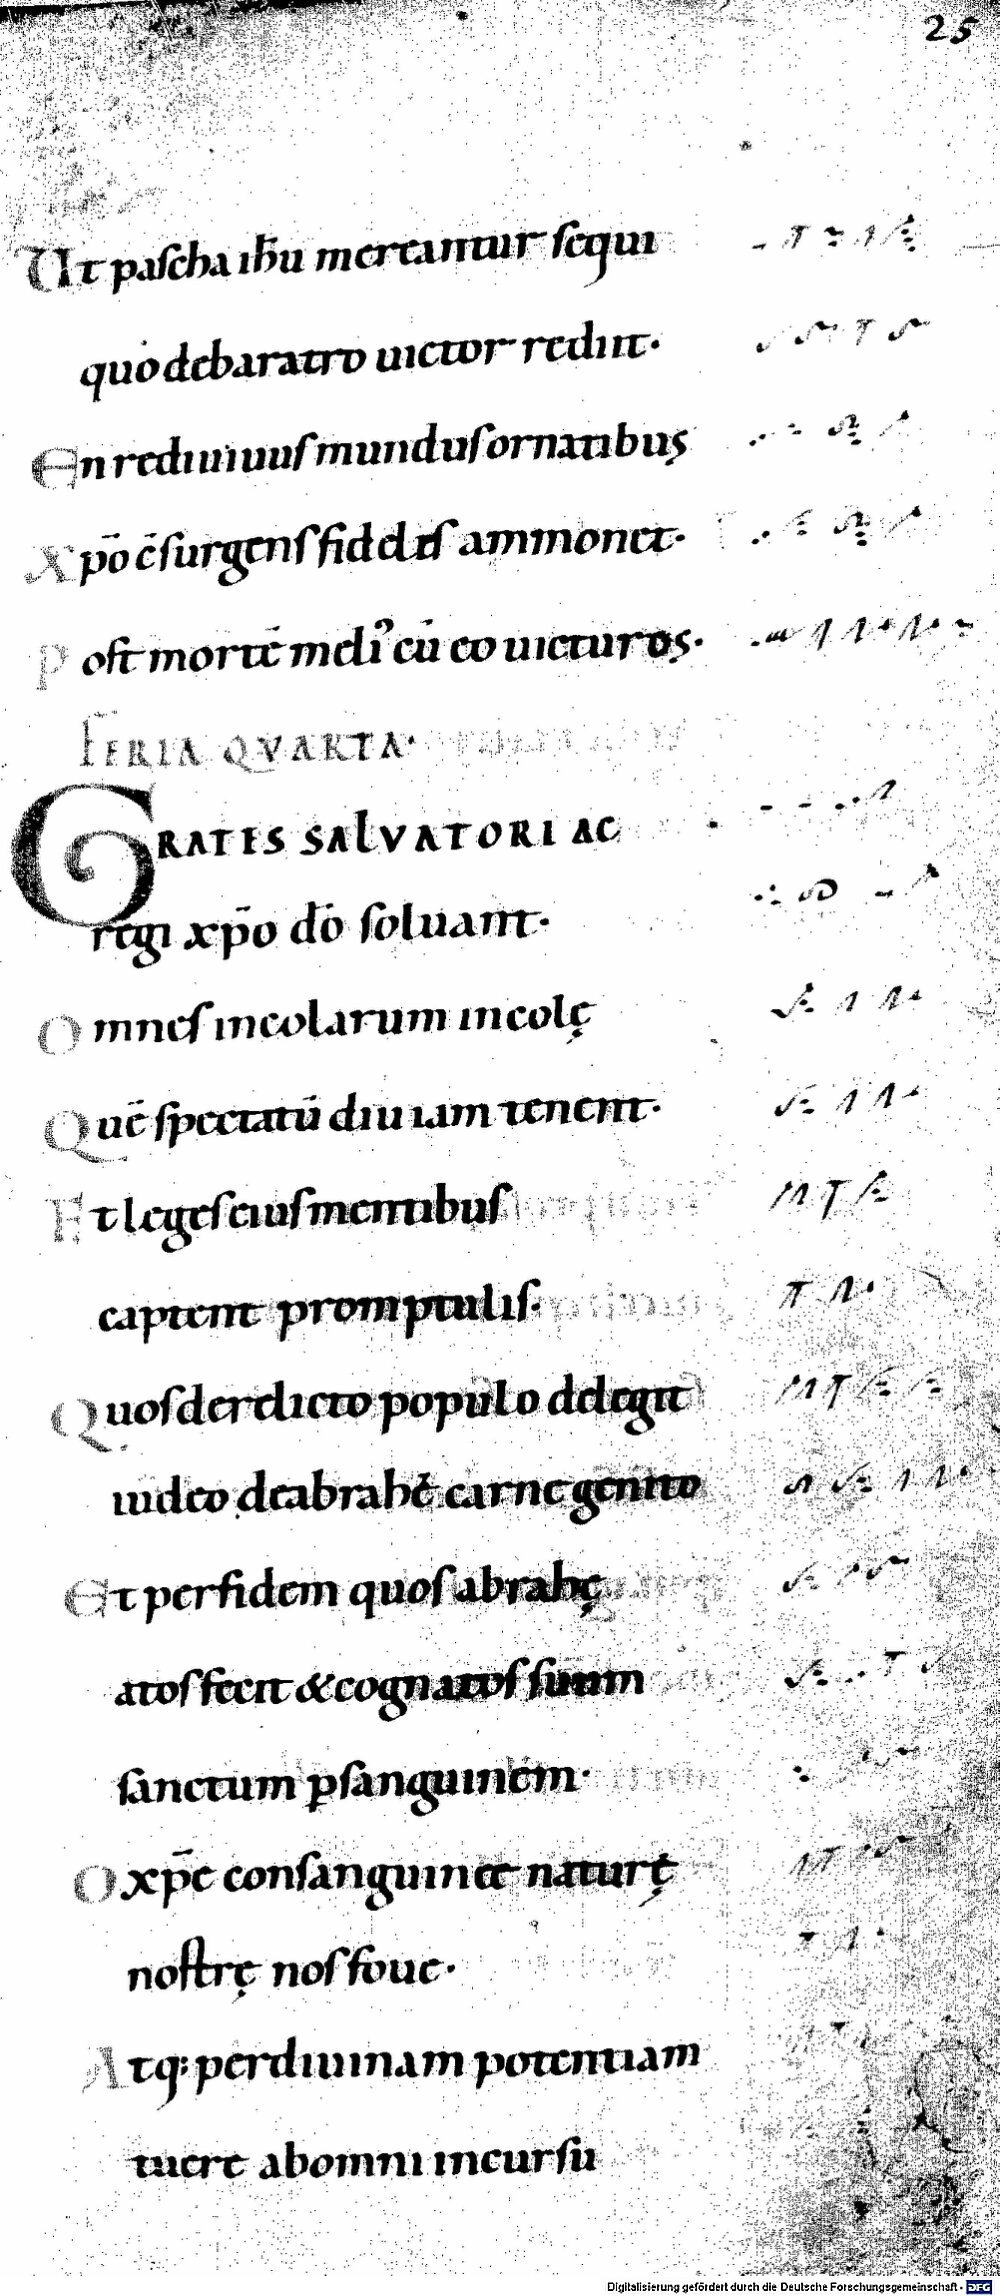 25
Ut pascha ihu mereantur sequi
quo debaratro uictor rediit·
En rediuiuus mundus ornatibus
Xp̄o c̄surgens fideles ammonet·
Post mortē meliꝰ cū eo uicturos·
FERIA QVARTA·
GRATES SALVATORI AC
regi xp̄o dō soluant·
Omnes incolarum incolę
Quē spectatū diu iam tenent·
Et leges eius mentibus
captent promptulis·
Quos derelicto populo delegit
iudeo de abrahę carne genito
Et per fidem quos abrahę
atos fecit & cognatos suum
sanctum ꝑ sanguinem·
O xp̄e consanguinee naturę
nostrę nos foue·
Atq: per diuinam potentiam
tuere ab omni incursu
Digitalisierung gefördert durch die Deutsche Forschungsgemeinschaft - DFG